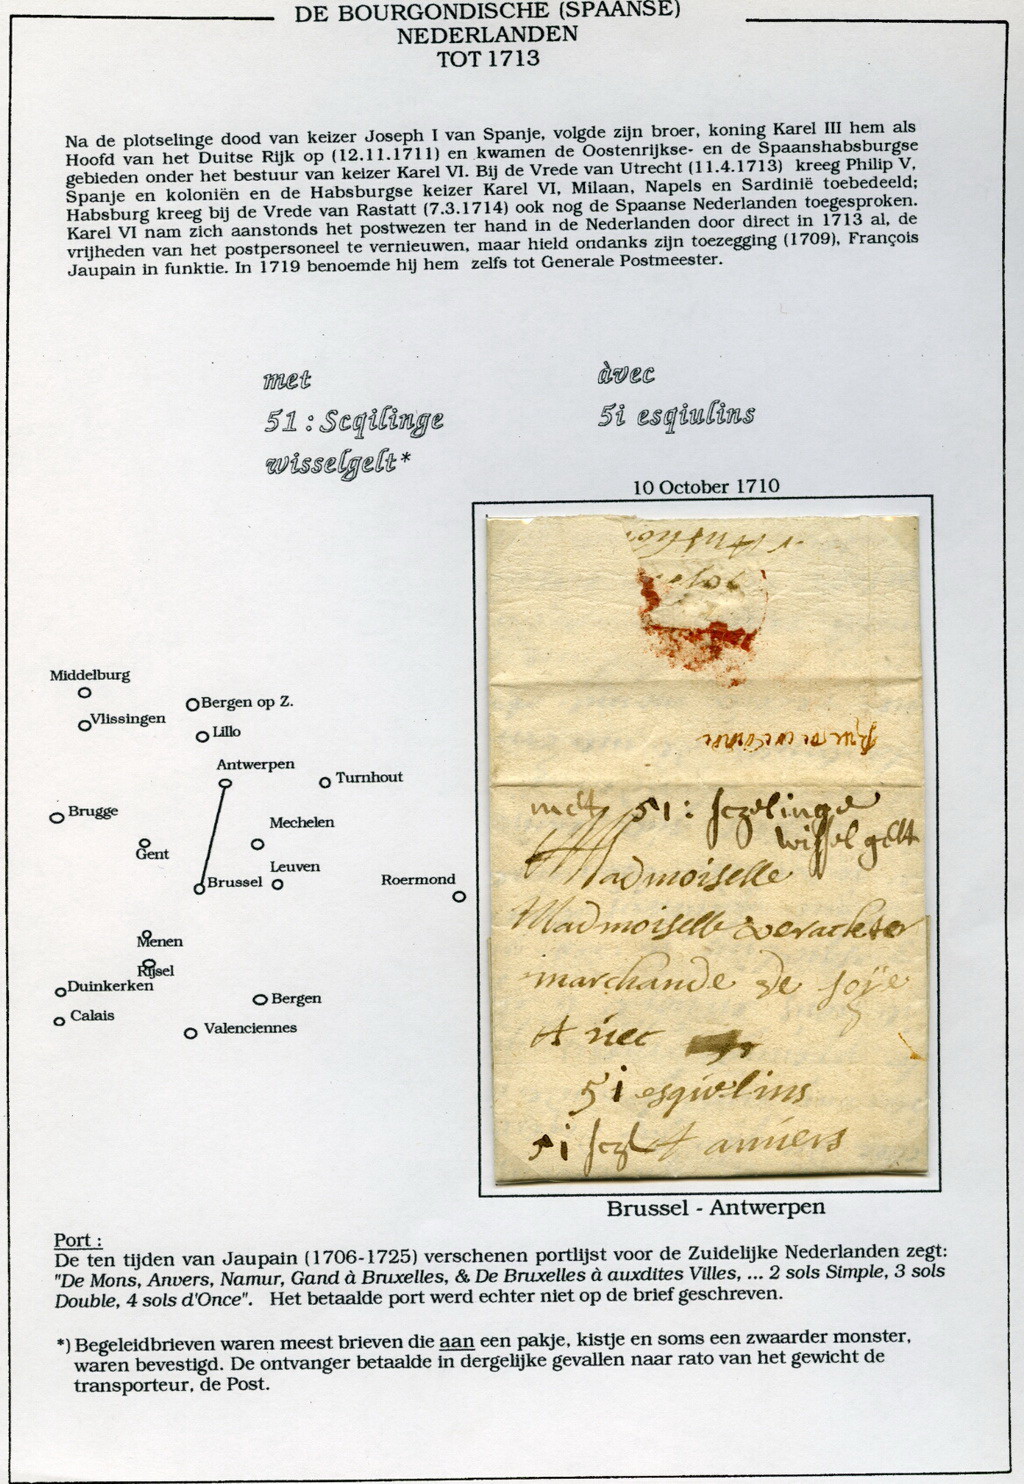 DE BOURGONDISCHE (SPAANSE)
NEDERLANDEN
TOT 1713
Na de plotselinge dood van keizer Joseph I van Spanje, volgde zijn broer, koning Karel III hem als
Hoofd van het Duitse Rijk op (12.11.1711) en kwamen de Oostenrijkse- en de Spaanshabsburgse
gebieden onder het bestuur van keizer Karel VI. Bij de Vrede van Utrecht (11.4.1713) kreeg Philip V,
Spanje en koloniën en de Habsburgse keizer Karel VI, Milaan, Napels en Sardinië toebedeeld;
Habsburg kreeg bij de Vrede van Rastatt (7.3.1714) ook nog de Spaanse Nederlanden toegesproken.
Karel VI nam zich aanstonds het postwezen ter hand in de Nederlanden door direct in 1713 al, de
vrijheden van het postpersoneel te vernieuwen, maar hield ondanks zijn toezegging (1709), François
Jaupain in funktie. In 1719 benoemde hij hem zelfs tot Generale Postmeester.
met
51 : Scqilinge
wisselgelt*
àvec
5i esqiulins
10 October 1710
met 51: sczelinge
wissel gelt
Madmoiselle
Madmoiselle verachter
marchande de soÿe
A vec
5i esqivelins
5i sczl A anvers
Middelburg
Vlissingen
Bergen op Z.
Lillo
Antwerpen
Turnhout
Brugge
Mechelen
Gent
Leuven
Brussel
Roermond
Menen
Rijsel
Duinkerken
Bergen
Calais
Valenciennes
Brussel - Antwerpen
Port :
De ten tijden van Jaupain (1706-1725) verschenen portlijst voor de Zuidelijke Nederlanden zegt:
"De Mons, Anvers, Namur, Gand à Bruxelles, & De Bruxelles à auxdites Villes, ... 2 sols Simple, 3 sols
Double, 4 sols d'Once". Het betaalde port werd echter niet op de brief geschreven.
*) Begeleidbrieven waren meest brieven die aan een pakje, kistje en soms een zwaarder monster,
waren bevestigd. De ontvanger betaalde in dergelijke gevallen naar rato van het gewicht de
transporteur, de Post.